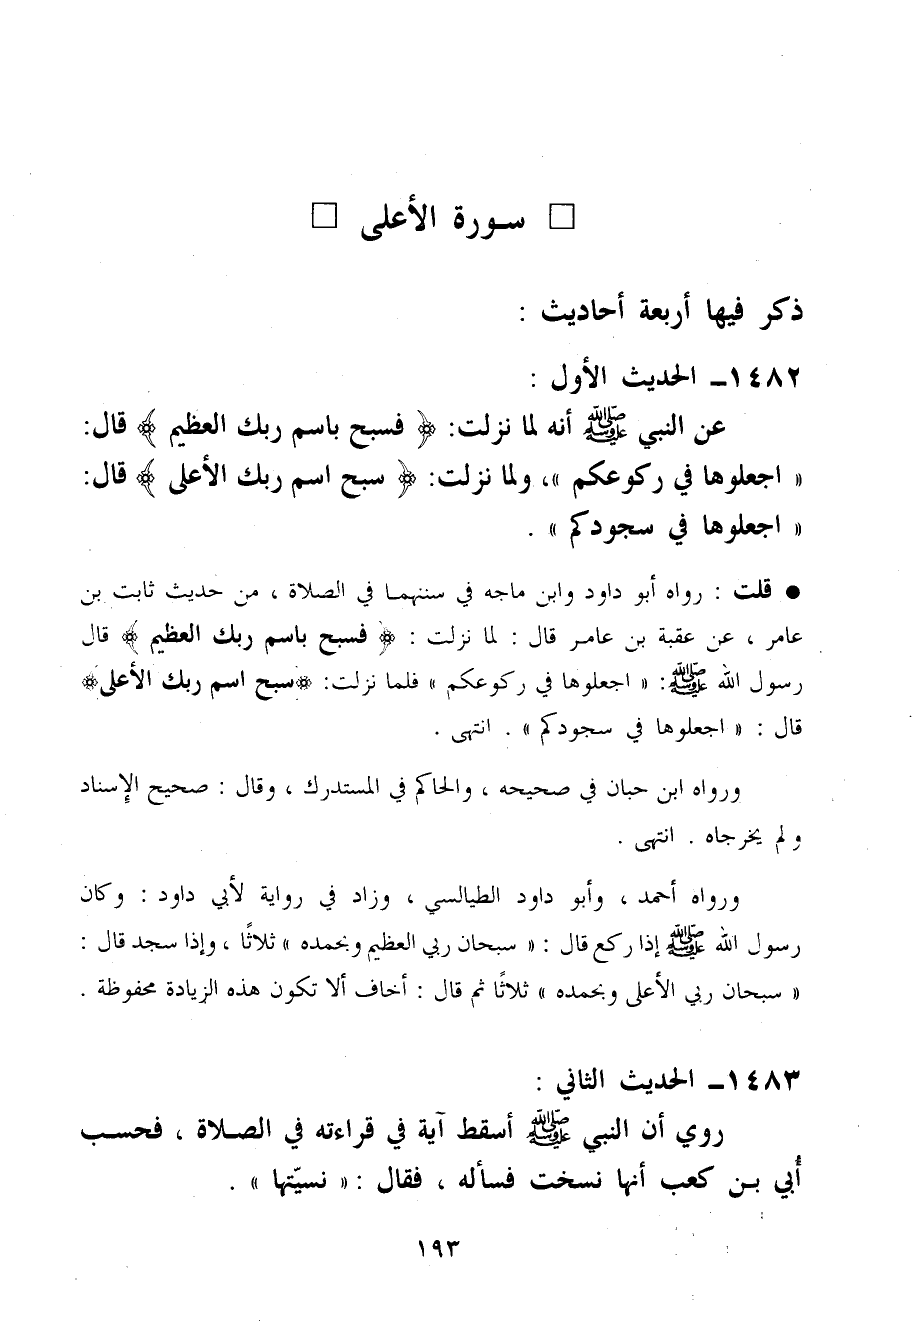 □ سورة الأعلى □
ذكر فيها أربعة أحاديث :
١٤٨٢ـ الحديث الأول :
عن النبي ﷺ أنه لما نزلت: ﴿ فسبح باسم ربك العظيم ﴾ قال:
« اجعلوها في ركوعكم »، ولما نزلت: ﴿ سبح اسم ربك الأعلى ﴾ قال:
« اجعلوها في سجودكم » .
● قلت : رواه أبو داود وابن ماجه في سننهما في الصلاة ، من حديث ثابت بن
عامر ، عن عقبة بن عامر قال : لما نزلت : ﴿ فسبح باسم ربك العظيم ﴾ قال
رسول الله ﷺ: « اجعلوها في ركوعكم » فلما نزلت: ﴿سبح اسم ربك الأعلى﴾
قال : « اجعلوها في سجودكم » . انتهى .
ورواه ابن حبان في صحيحه ، والحاكم في المستدرك ، وقال : صحيح الإسناد
ولم يخرجاه . انتهى .
ورواه أحمد ، وأبو داود الطيالسي ، وزاد في رواية لأبي داود : وكان
رسول الله ﷺ إذا ركع قال : « سبحان ربي العظيم وبحمده » ثلاثًا ، وإذا سجد قال :
« سبحان ربي الأعلى وبحمده » ثلاثًا ثم قال : أخاف ألا تكون هذه الزيادة محفوظة .
١٤٨٣ـ الحديث الثاني :
روي أن النبي ﷺ أسقط آية في قراءته في الصلاة ، فحسب
أُبي بن كعب أنها نسخت فسأله ، فقال : « نسيّتها » .
١٩٣